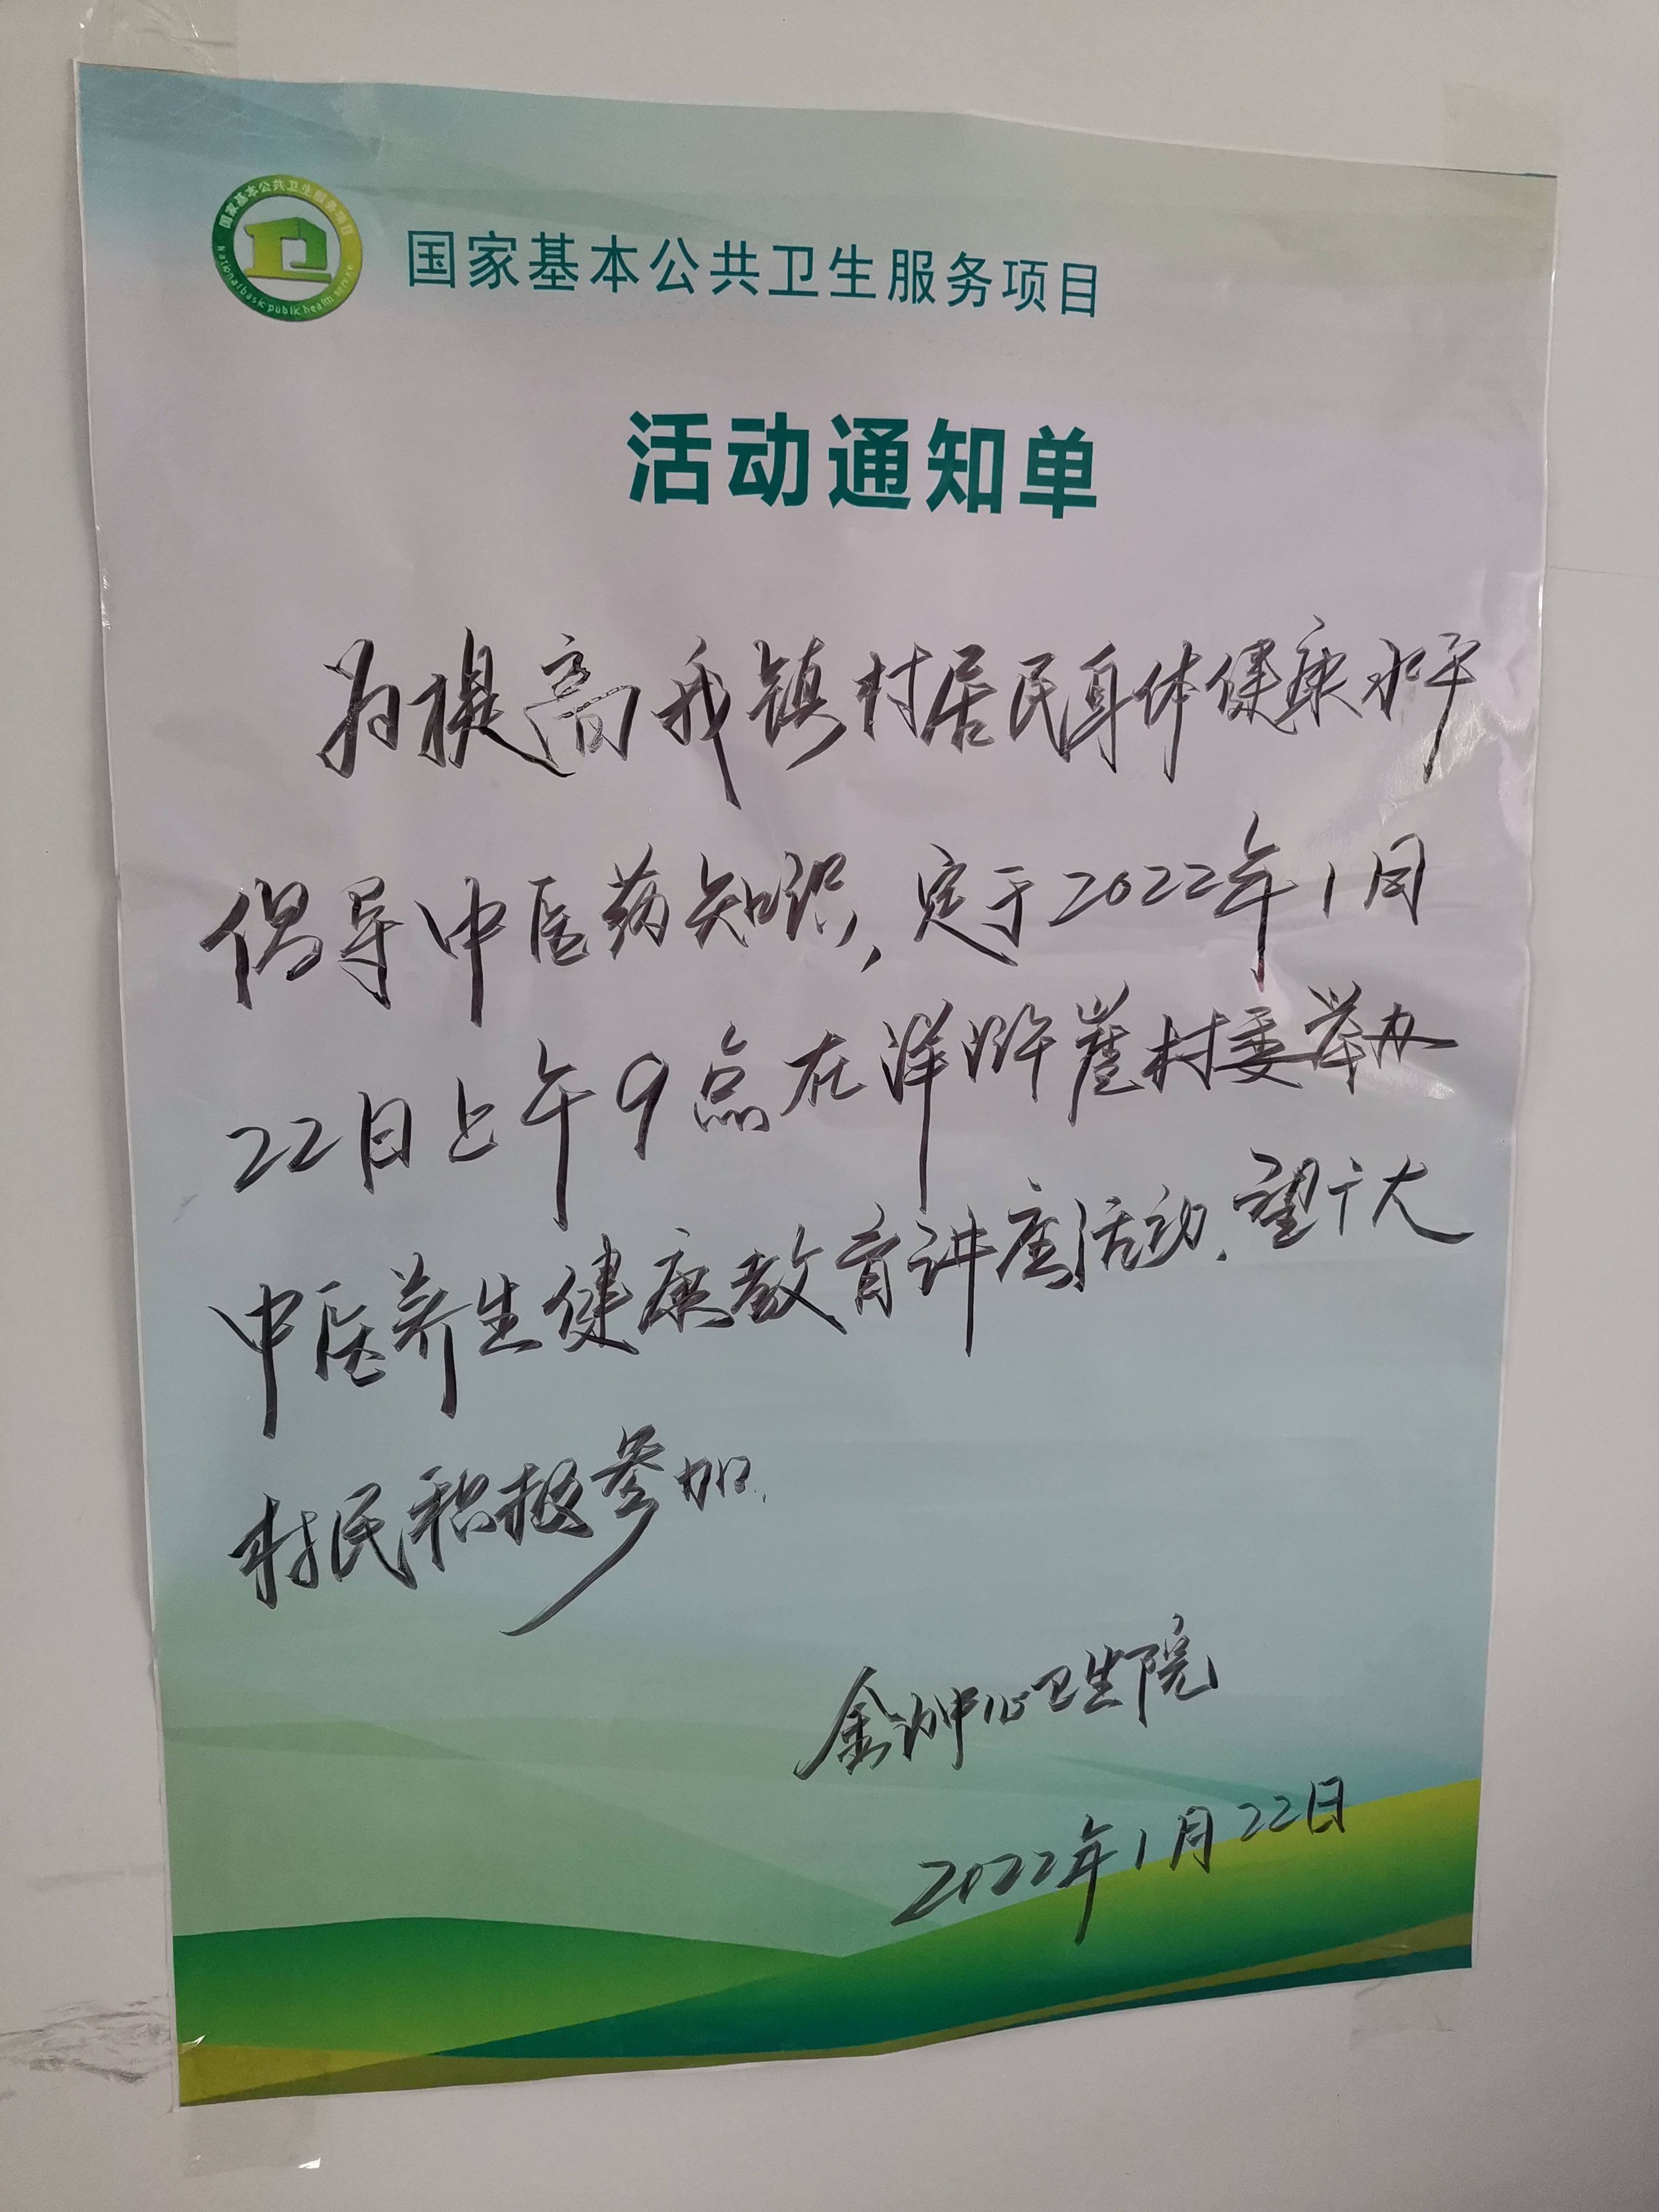 国家基本公共卫生服务项目
National basic public health service
国家基本公共卫生服务项目
活动通知单
为提高我镇村居民身体健康水平
倡导中医药知识，定于2022年1月
22日上午9点在洋浒崖村委举办
中医养生健康教育讲座活动，望广大
村民积极参加.
金洲中心卫生院
2022年1月22日